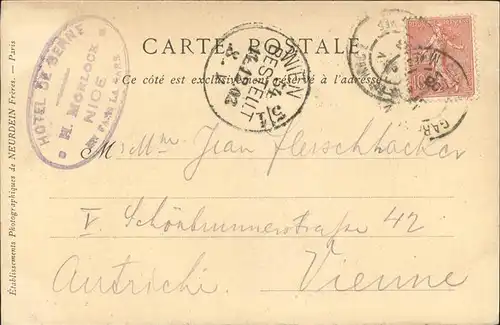 CARTE POSTALE
Ce côté est exclusivement réservé à l'adresse
HOTEL DE BERNE
H. MORLOCK
NICE
EN FACE LA GARE
WIEN
BESTELLT
Établissements Photographiques de NEURDEIN Frères. — Paris
Jean Fleischhacker
V. Schönbrunnerstraße 42
Autriche Vienne